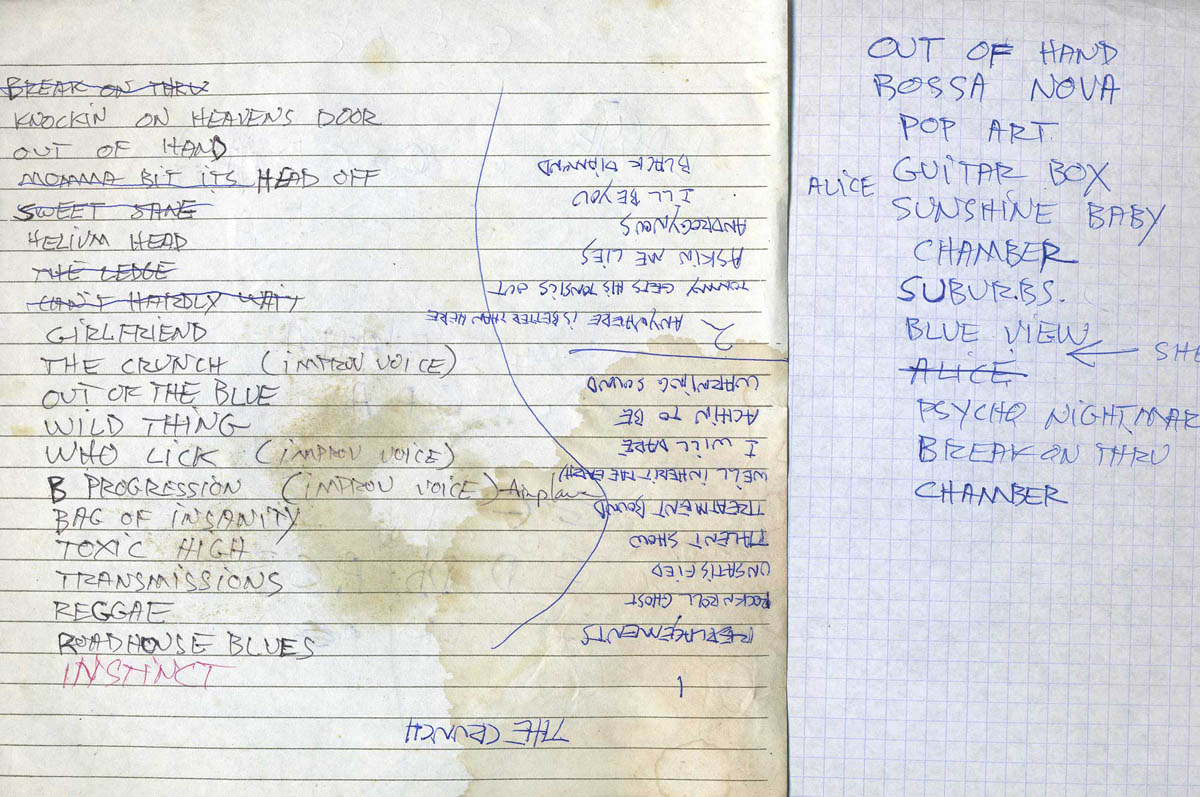 BREAK ON THRU
KNOCKIN ON HEAVEN'S DOOR
OUT OF HAND
MOMMA BIT ITS HEAD OFF
SWEET JANE
HELIUM HEAD
THE LEDGE
CAN'T HARDLY WAIT
GIRLFRIEND
THE CRUNCH (IMPROV VOICE)
OUT OF THE BLUE
WILD THING
WHO LICK (IMPROV VOICE)
B PROGRESSION (IMPROV VOICE) - Airplane
BAG OF INSANITY
TOXIC HIGH
TRANSMISSIONS
REGGAE
ROADHOUSE BLUES
INSTINCT
THE CRUNCH
1
REPLACEMENTS
ROCK N ROLL GHOST
UNSATISFIED
TALENT SHOW
TREATMENT BOUND
WE'LL INHERIT THE EARTH)
I WILL DARE
ACHIN TO BE
WARNING SOUND
2
ANYWHERE IS BETTER THAN HERE
TOMMY GETS HIS TONSILS OUT
ASKIN ME LIES
ANDROGYNOUS
I'LL BE YOU
BLACK DIAMOND
OUT OF HAND
BOSSA NOVA
POP ART
ALICE GUITAR BOX
SUNSHINE BABY
CHAMBER
SUBURBS.
BLUE VIEW
SHE
ALICE
PSYCHO NIGHTMAR
BREAK ON THRU
CHAMBER